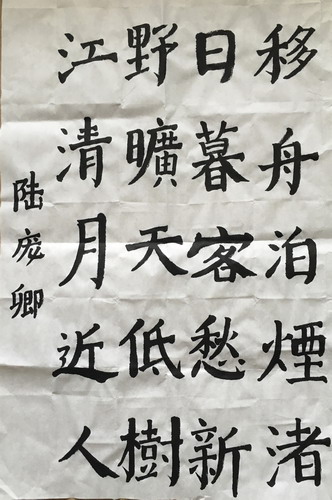 移舟泊煙渚
日暮客愁新
野曠天低樹
江清月近人
陸彦卿